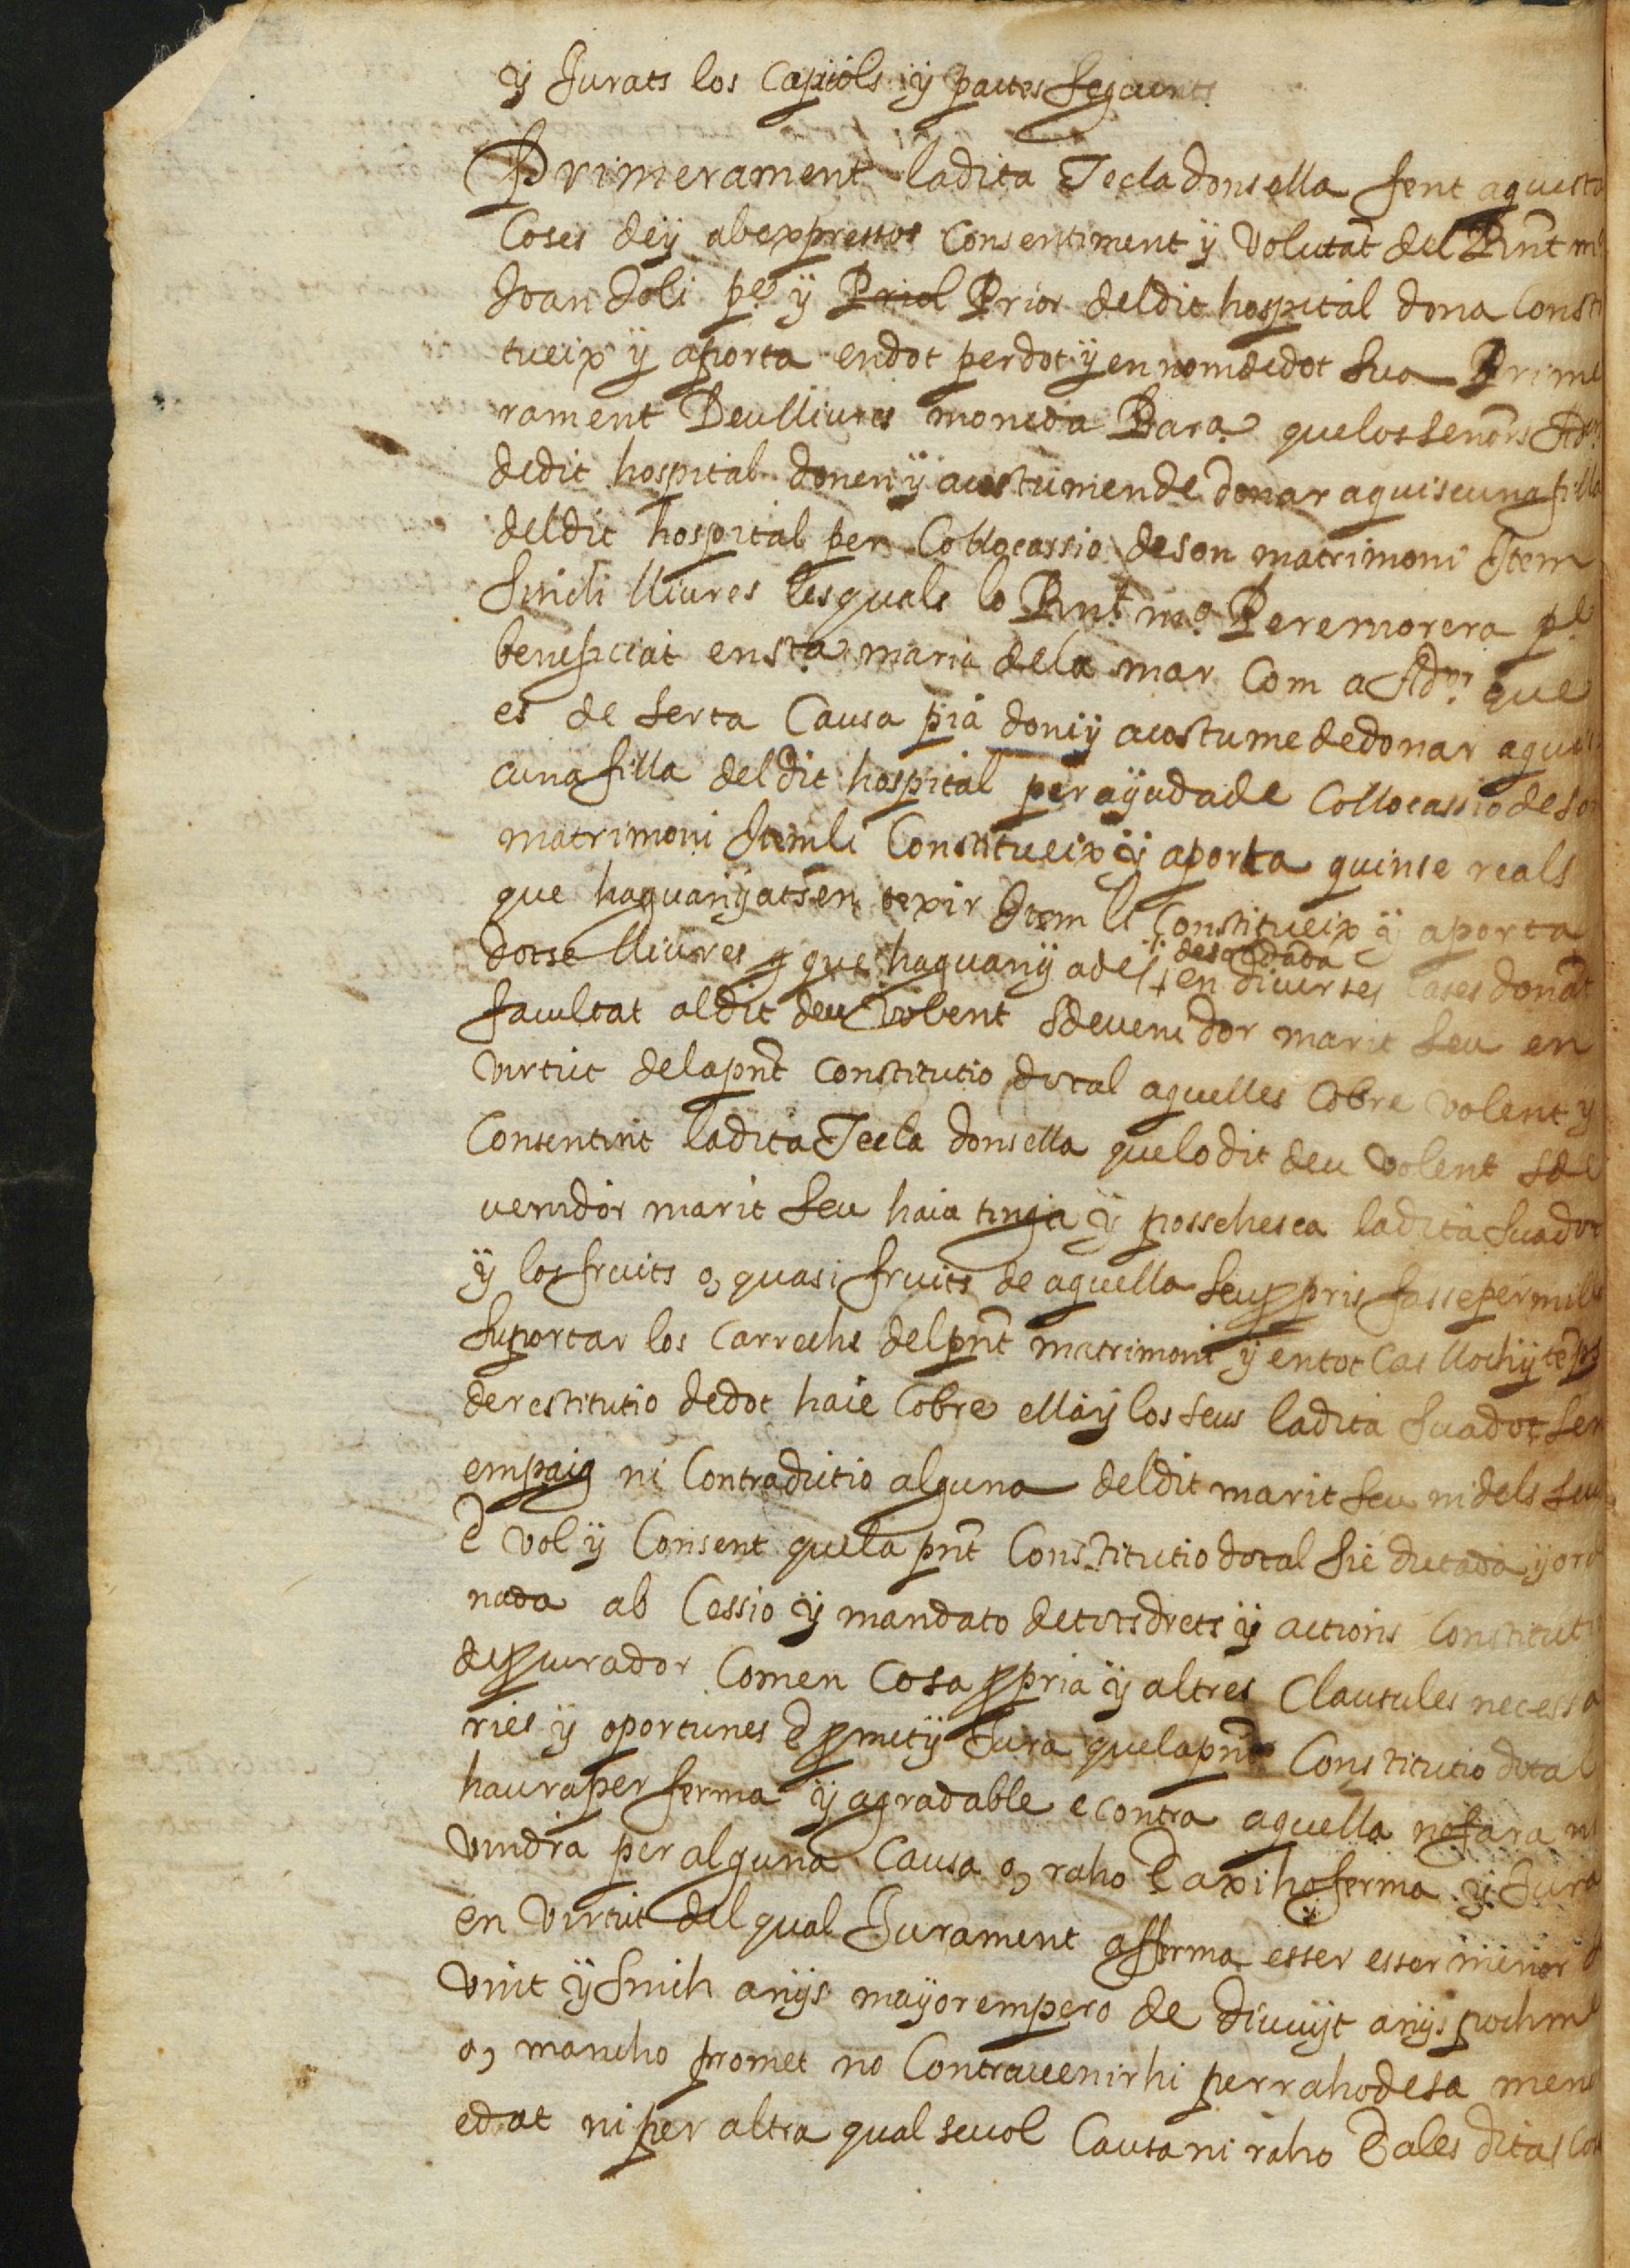 y Jurats los Capitols y pactes seguents
Primerament la dita Tecla donsella fent aquesta
Coses dey ab expressos Consentiment y Volutat del Rnt mº
Joan Joli pe y Priol Prior del dit hospital dona Consti
tueix y aporta en dot per dot y en nom de dot sua Prime
rament Deu lliures moneda Bara que los senors Adors
de dit hospital donen y acostumen de donar a quiscuna filla
del dit hospital per Collocassio de son matrimoni Item
Sinch lliures les quals lo Rnt mº Pere morera pe
beneficiat en sta maria de la mar Com a Ador que
es de serta Causa pia done y acostume de donar a quis
cuna filla del dit hospital per ayuda de Collocassio de son
matrimoni Item li Constitueix y aporta quinse reals
que ha guanyats en texir Item li Constitueix y aporta
dotse lliures q que ha guany ades en diverses Cases donat
facultat al dit deu Volent sdevenidor marit seu en
virtut de la pnt Constitutio dotal aquelles Cobre volent y
Consentint la dita Tecla donsella que lo dit deu Volent sde
venidor marit seu haia tinga y possehesca la dita sua dot
y los fruits o, quasi fruits de aquella seus pris fasse per mills
suportar los Carrechs del pnt matrimoni y en tot Cas lloch y temps
de restitutio de dot haie Cobre ella y los seus la dita sua dot sens
empaig ni Contradictio alguna del dit marit seu ni dels seus
E vol y Consent que la pnt Constitutio dotal sie dictada y ord
nada ab Cessio y mandato de tots drets y actions Constitutio
de pcurador Com en Cosa ppria y altres Clausules necessa
ries y oportunes E pmet y Jura que la pnt Constitutio dotal
haura per ferma y agradable e contra aquella no fara ni
vindra per alguna Causa o, raho E axi ho ferma y Jura
en virtut del qual Jurament afferma esser esser menor d
vint y sinch anys mayor empero de divuyt anys poch me
o, mancho promet no Contravenirhi per raho de sa menor
edat ni per altra qual sevol Causa ni raho E a les dites Cos